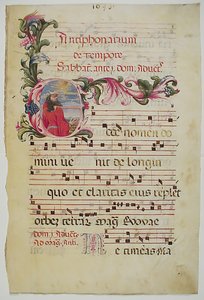 Antiphonarium
de tempore
Sabbat. ante i. dom. Advet.
cce nomen do
mini ve nit de longin
quo et claritas eius replet
orbez terraz
Dom. i. Advet.
Ad
N e timeas Ma